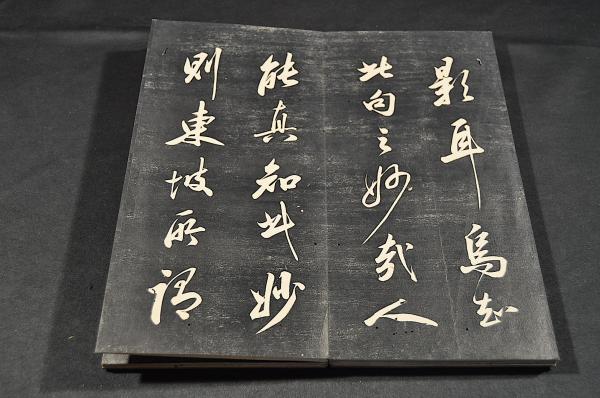 影耳烏知
此句之妙哉人
能真知此妙
則東坡所謂